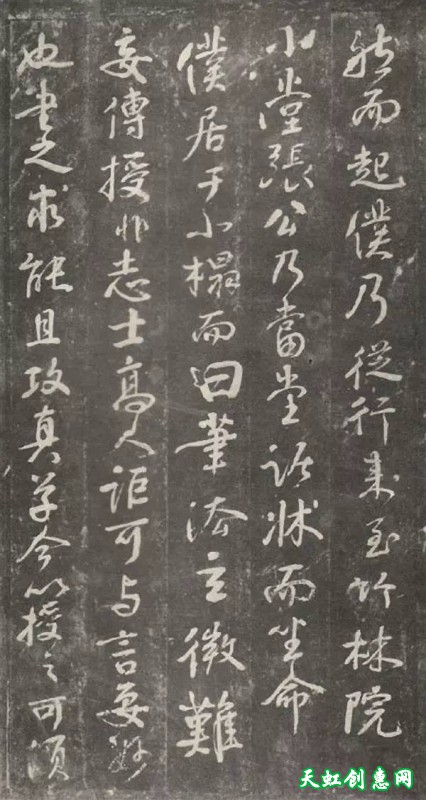 然而起僕乃從行来至竹林院
小堂張公乃當堂踞牀而坐命
僕居于小榻而曰筆法玄微難
妄傳授非志士高人詎可与言要妙
也書之求能且攻真草今以授之可須
天虹创意网